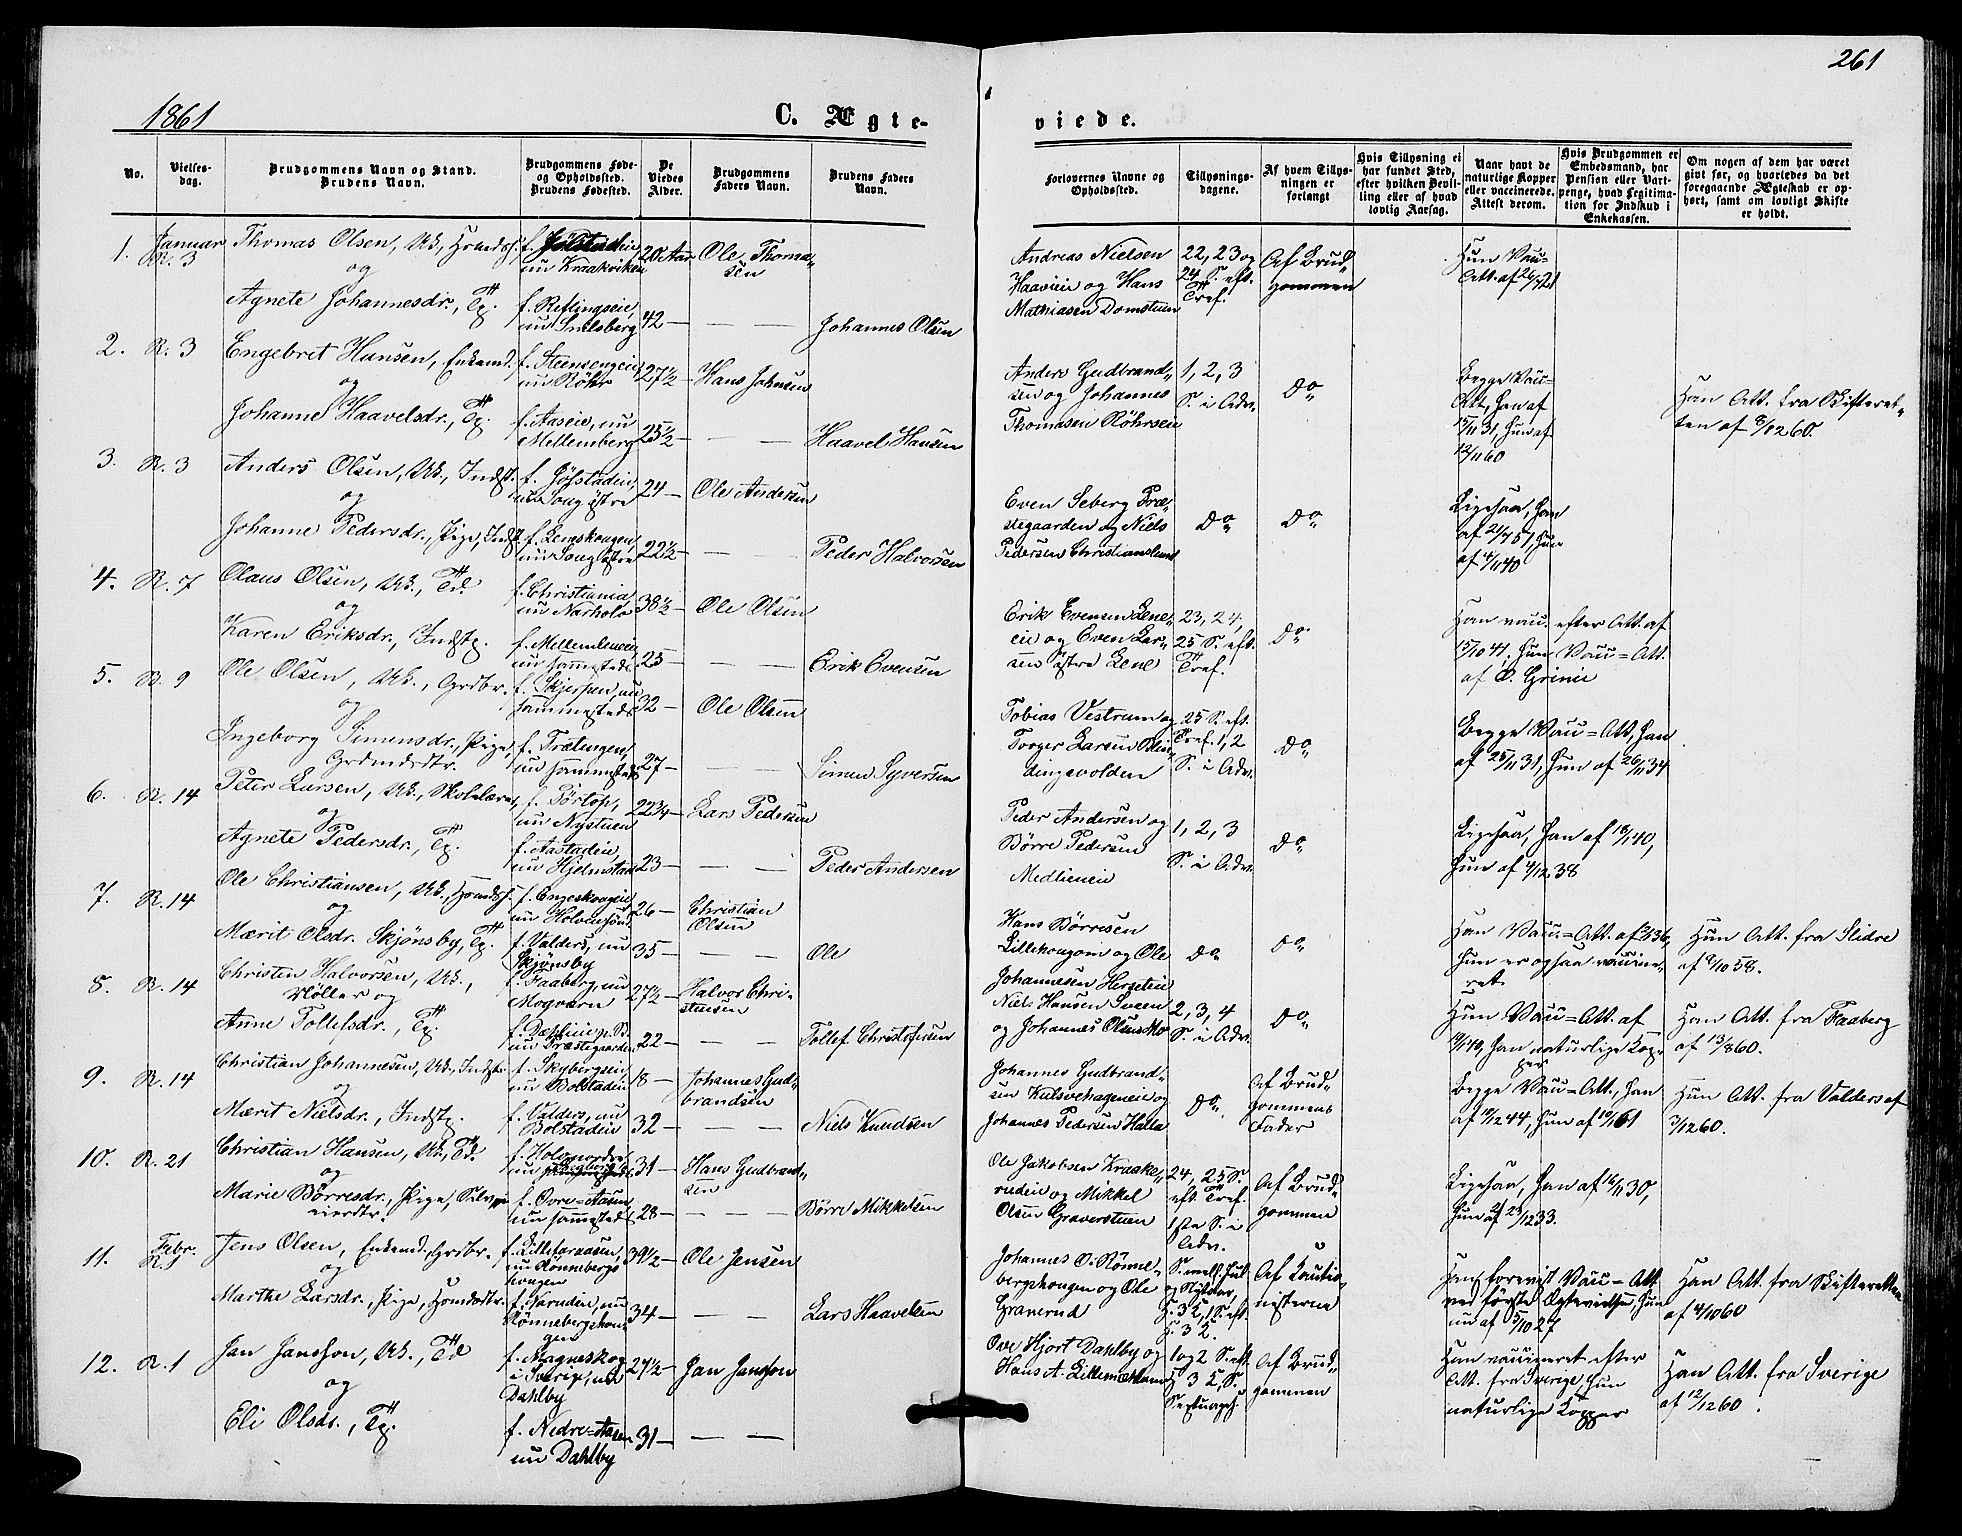 261
1861
C. Ægte-
viede.
No.
Vielses-
dag.
Brudgommens Navn og Stand.
Brudens Navn.
Brudgommens Føde-
og Opholdssted.
Brudens Fødested.
De
Viedes
Alder.
Brudgommens
Faders Navn.
Brudens Faders
Navn.
Forlovernes Navne og
Opholdssted.
Tillysnings-
dagene.
Af hvem Tillys-
ningen er
forlangt
Hvis Tillysning ei
har fundet Sted,
efter hvilken Bevil-
ling eller af hvad
lovlig Aarsag.
Naar havt de
naturlige Kopper
eller vaccinerede.
Attest derom.
Hvis Brudgommen er
Embedsmand, har
Pension eller Vart-
penge, hvad Legitima-
tion for Indskud i
Enkekassen.
Om nogen af dem har været
givt før, og hvorledes da det
foregaaende Ægteskab er op-
hørt, samt om lovligt Skifte
er holdt.
1.
Januar
R. 3
Thomas Olsen, Uk.
og
Agnete Johannesdr., Tp.
nu Kraakviken
20 Aar
42 —
Ole Thoma-
sen
Johannes Olsen
Andreas Nielsen
Haavieie og Hans
Mathiasen Domstuen
22, 23 og
24 S. eft.
Tref.
Af Brud-
gommen
Hun Vac-
Att. af
2. R. 3
Engebret Hansen, Enkemd.
og
Johanne Haavelsdr., Tp.
f. Steensengeie,
nu Röhr
f. Aaseie, nu
Mellemberg
27½ —
25½ —
Hans Johnsen
Haavel Hansen
Anders Gudbrand-
sen og Johannes
Thomasen Röhrseie
1, 2, 3
S. i Adv.
Do
Begge Vac-
Att, han af
15/11 31, hun af
12/11 60
Han Att. fra Skifteret-
ten af 8/12 60.
3. R. 3
Anders Olsen, Uk., Indst.
og
Johanne Pedersdr., Pige, Indst.
24 —
22½ —
Ole Andersen
Peder Halvorsen
Even Seberg Præ-
stegaarden og Niels
Pedersen Christianslund
Do
Do
Ligesaa, han
af 21/7 57, hun
af 4/11 40
4. R. 7
Olaus Olsen, Uk., Td.
og
Karen Eriksdr., Indstp.
f. Christiania
nu Narholo
nu sammesteds
38½ —
25 —
Ole Olsen
Erik Evensen
Erik Evensen Lene-
eie og Even Lar-
sen østre Lene
23, 24,
25 S. eft.
Tref.
Do
Han vac. efter Att. af
15/10 41, hun Vac = Att.
af C. Grinie
5. R. 9
Ole Olsen, Uk., Grdbr.
og
Ingeborg Simensdr., Pige,
Grdmdsdtr.
f. Skjerpen, nu
sammesteds
f. Trætengen,
nu sammesteds
32 —
27 —
Ole Olsen
Simen Syversen
Tobias Vestrum og
Torger Larsen Odin-
dingsvolden
25 S. eft.
Tref. 1, 2
S. i Adv.
Do
Begge Vac = Att, han
af 25/11 31, hun af 26/11 34
6. R. 14
Peter Larsen, Uk., Skolelærer,
og
Agnete Pedersdr., Tp.
f. Törtop,
nu Nystuen
f. Aastadeie,
nu Hjelmstad
22¾ —
23 —
Lars Pedersen
Peder Andersen
Peder Andersen og
Börre Pedersen
Medlieneie
1, 2, 3
S. i Adv.
Do
Ligesaa, han af 18/1 40,
hun af 4/12 38
7. R. 14
Ole Christiansen, Uk.
og
Mærit Olsdr. Skjönsby, Tp.
f. Engeskougeie
f. Valders, nu
Skjönsby
26 —
35 —
Christian
Olsen
Ole
Hans Börresen
Lillehougom og Ole
Johannesen Herseteie
Do
Do
Han Vac. = Att. af
hun er ogsaa vaccine-
ret
Hun Att. fra Slidre
af 8/10 58.
8. R. 14
Christen Halvorsen, Uk.,
Möller og
Anne Tollefsdr., Tp.
f. Faaberg, nu
Mogværn
nu Præstegaarden
27½ —
22 —
Halvor Chri-
stensen
Tollef Christofersen
Niels Hansen Sveen
og Johannes Olsen Mo
2, 3, 4
S. i Adv.
Do
Hun Vac = Att. af
han naturlige Kop-
per
Han Att. fra Faaberg
af 13/8 60.
9. R. 14
Christian Johannesen, Uk., Indst.
og
Mærit Nielsdr., Indstp.
f. Skybergseie
nu Bolstadeie
f. Valders, nu
Bolstadeie
18 —
32 —
Johannes Gud-
brandsen
Niels Knudsen
Johannes Gudbrand-
sen Kulsvehageneie og
Johannes Pedersen Halla
Do
Af Brud-
gommens
Fader
Begge Vac = Att., han
af 19/12 44, hun af 10/1 61
Hun Att. fra Valders af
7/12 60.
10. R. 21
Christian Hansen, Uk., Td.
og
Marie Börresdr., Pige, Selv-
eierdtr.
f. Holo nordre
f. Övre = Aasen
nu sammesteds
31 —
28 —
Hans Gudbrand-
sen
Börre Mikkelsen
Ole Jakobsen Kraake-
rudeie og Mikkel
Olsen Graverstuen
24, 25 S.
eft. Tref.
1ste S. i
Adv.
Af Brud-
gommen
Ligesaa, han af 16/11 30,
hun af 23/12 33.
11.
Febr.
R. 1
Jens Olsen, Enkemd., Grdbr.
og
Marthe Larsdr., Pige
nu Rönnebergs
hougen
nu
Rönnebergshou-
gen
39½ —
34 —
Ole Jensen
Lars Haavelsen
Johannes O. Rönne-
bergshougen og Ole
Gravrud
S. mell. Jul
og Nytaar,
H. 3 K., 1 S. eft.
H. 3 K.
Af Kautio-
nisterne
Han forevist Vac = Att.
ved første Ægtevielse, hun
nu af 5/10 27
Han Att. fra Skifteretten
af 4/10 60
12. R. 1
Jan Jansson, Uk., Td
og
Eli Olsdr., Tp.
f. Magneskog
i Sverig, nu
Dahlby
f. Nedre = Aasen
nu Dahlby
27½ —
31 —
Jan Jansson
Ove Hjort Dahlby og
Hans A. Lillemæhlum
1 og 2 S. eft.
H. 3 K., S.
Septuages.
Af Brud-
gommen
Han vaccineret efter
Att. fra Sverige, hun
naturlige Kopper
Han Att. fra Sverige
af 12/12 60.